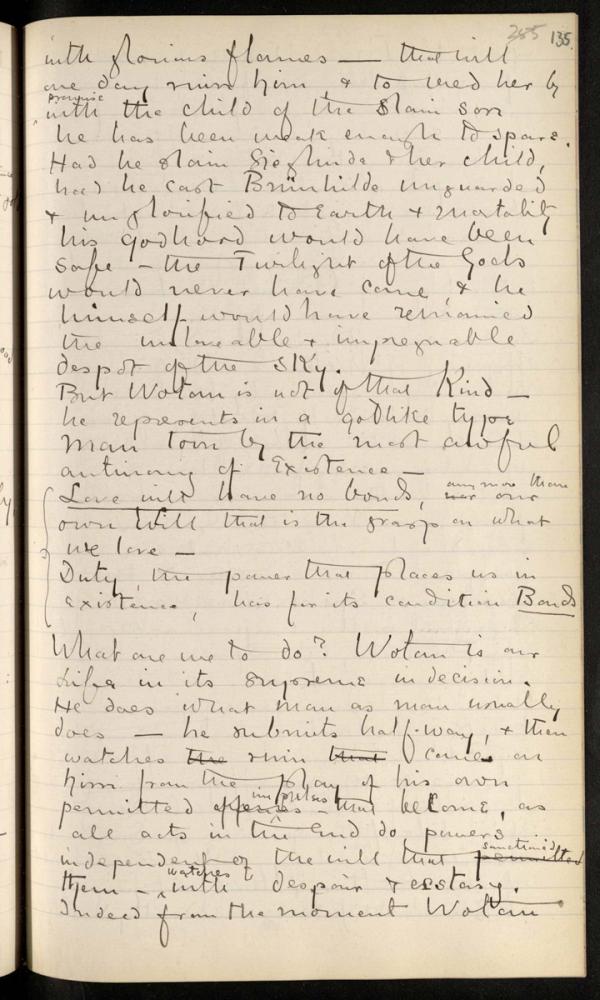 255 135
with glorious flames — that will
one day ruin him, & to wed her by
promise
with the child of the slain son
he has been weak enough to spare.
Had he slain Sieglinde & her child,
had he cast Brünhilde unguarded
& unglorified to Earth & mortality
his godhood would have been
safe — the Twilight of the Gods
would never have come, & he
himself would have remained
the unloveable & impregnable
despot of the sky.
But Wotan is not of that Kind —
he represents in a godlike type
man torn by the most awful
antinomy of Existence —
Love will have no bonds, any more than
nor our
own Will that is the grasp on what
we love —
Duty, the power that places us in
existence, has for its condition Bonds
What are we to do? Wotan is our
Life in its supreme indecision.
He does what man as man usually
does — he submits half-way, & then
watches the ruin that comes on
him from the play of his own
impulses
permitted offenses — that become, as
all acts in the End do, powers
sanctioned
independent of the will that permitted
watches it
them — with despair & ecstasy.
Indeed from the moment Wotan